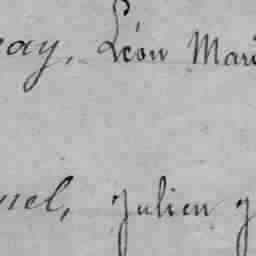 ray, Léon Mari
nel, Julien J